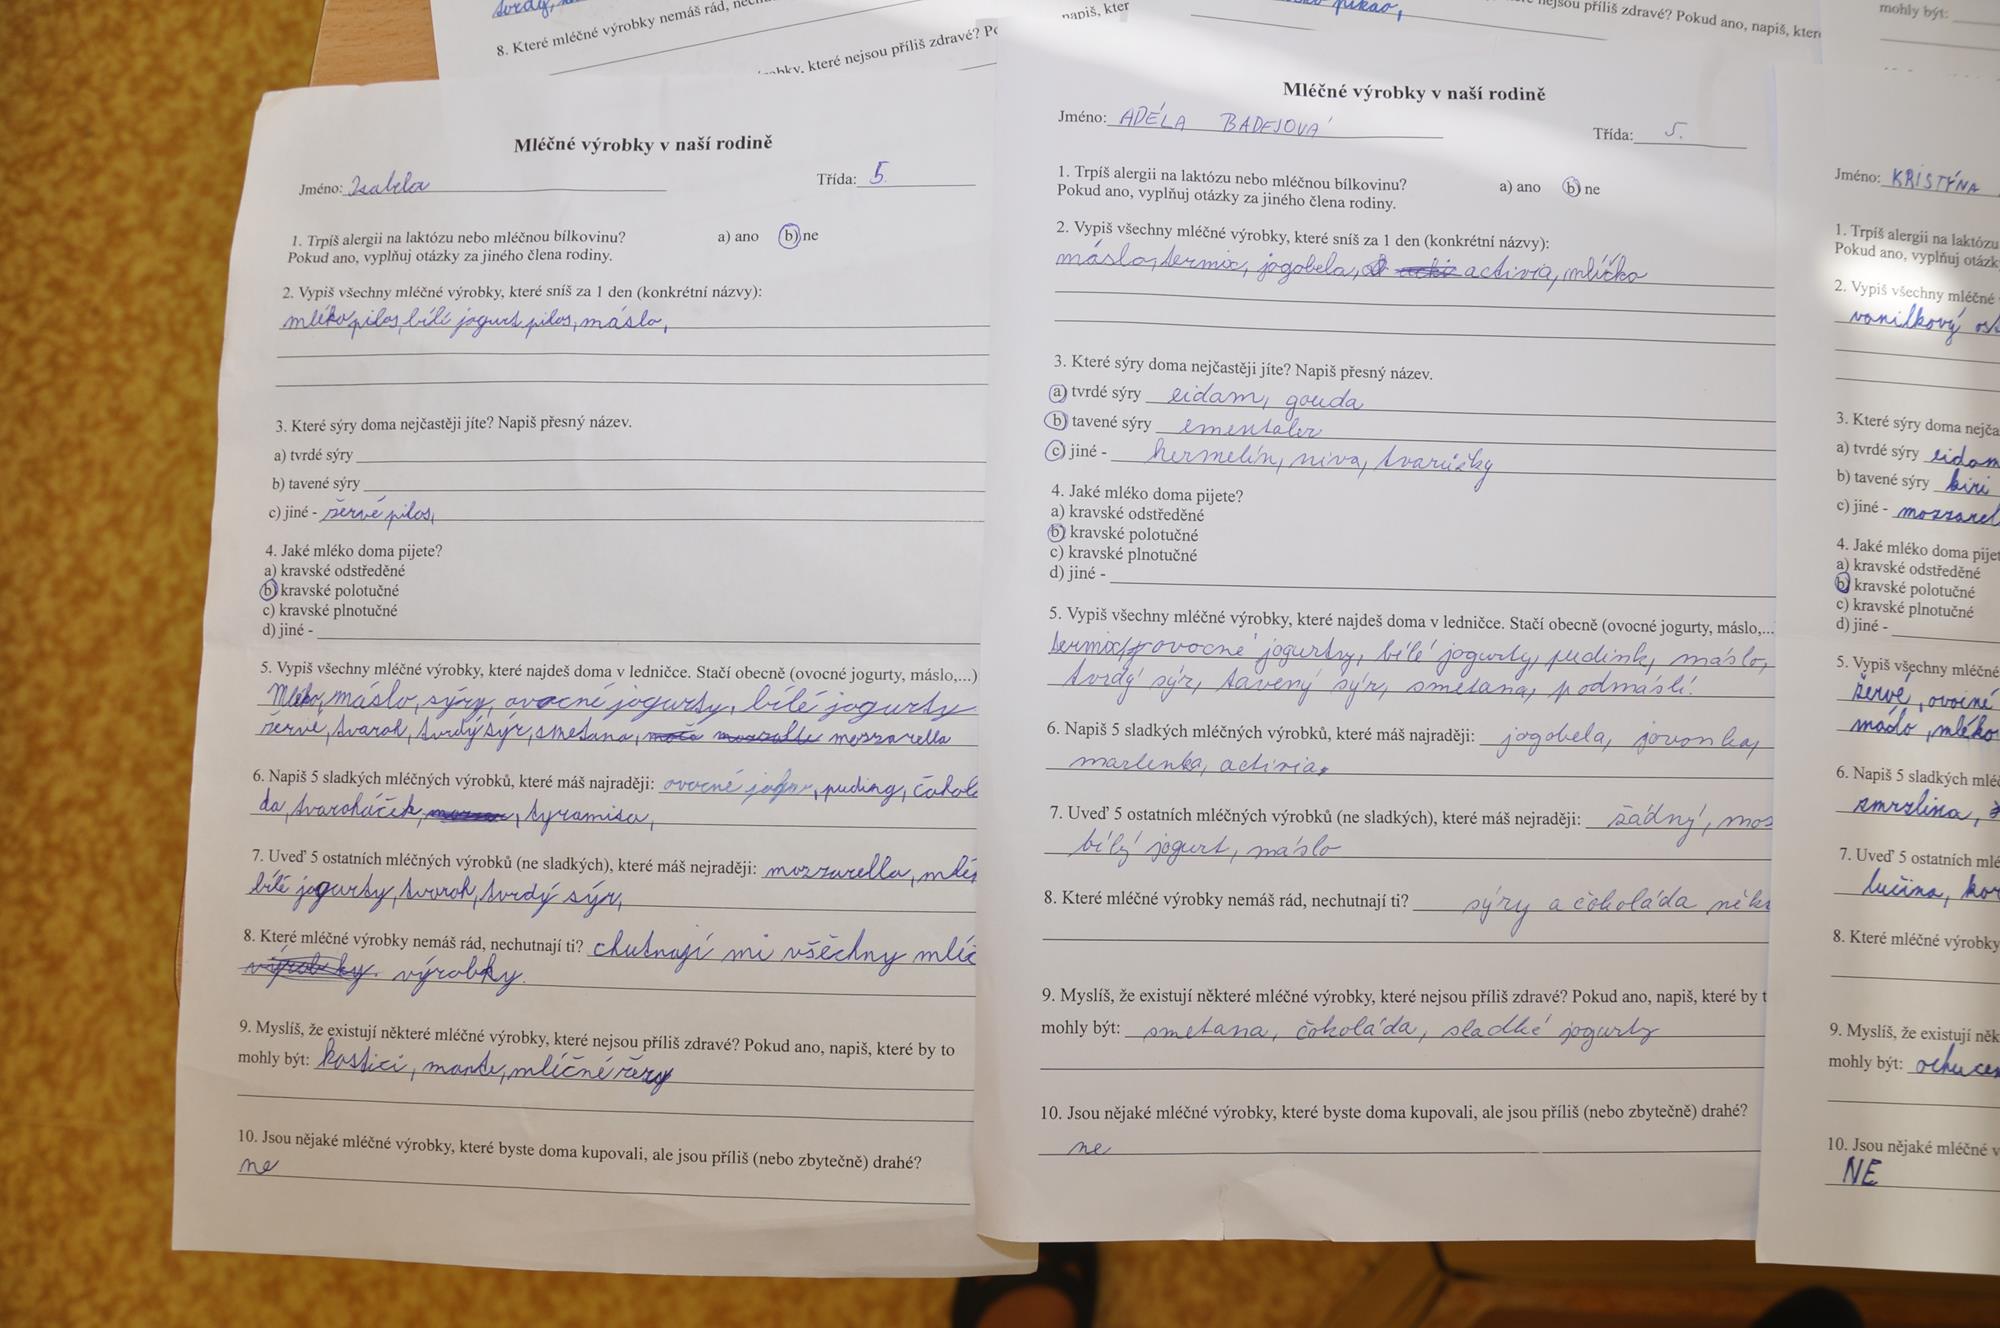 8. Které mléčné výrobky nemáš rád,
které nejsou příliš zdravé?
napiš, kter
nejsou příliš zdravé? Pokud ano, napiš, kter
mohly být:
Mléčné výrobky v naší rodině
Jméno: Izabela Třída: 5.
1. Trpíš alergii na laktózu nebo mléčnou bílkovinu? a) ano b) ne
Pokud ano, vyplňuj otázky za jiného člena rodiny.
2. Vypiš všechny mléčné výrobky, které sníš za 1 den (konkrétní názvy):
mléko pilos, bílí jogurt pilos, máslo,
3. Které sýry doma nejčastěji jíte? Napiš přesný název.
a) tvrdé sýry
b) tavené sýry
c) jiné - žervé pilos,
4. Jaké mléko doma pijete?
a) kravské odstředěné
b) kravské polotučné
c) kravské plnotučné
d) jiné -
5. Vypiš všechny mléčné výrobky, které najdeš doma v ledničce. Stačí obecně (ovocné jogurty, máslo,...)
Mléko, máslo, sýry, ovocné jogurty, bílé jogurty
žervé, tvaroh, tvrdý sýr, smetana, mozzarella
6. Napiš 5 sladkých mléčných výrobků, které máš najraději: ovocné, puding, čokolá
da, tvaroháček, tyramisu,
7. Uveď 5 ostatních mléčných výrobků (ne sladkých), které máš nejraději: mozzarella,
bílé jogurty, tvaroh, tvrdý sýr,
8. Které mléčné výrobky nemáš rád, nechutnají ti? chutnají mi všechny mléč
výrobky. výrobky.
9. Myslíš, že existují některé mléčné výrobky, které nejsou příliš zdravé? Pokud ano, napiš, které by to
mohly být: kostici, mléčné řezy
10. Jsou nějaké mléčné výrobky, které byste doma kupovali, ale jsou příliš (nebo zbytečně) drahé?
ne
Mléčné výrobky v naší rodině
Jméno: ADÉLA BADEJOVÁ Třída: 5.
1. Trpíš alergii na laktózu nebo mléčnou bílkovinu? a) ano b) ne
Pokud ano, vyplňuj otázky za jiného člena rodiny.
2. Vypiš všechny mléčné výrobky, které sníš za 1 den (konkrétní názvy):
máslo, termix, jogobela, activia, mlíčko
3. Které sýry doma nejčastěji jíte? Napiš přesný název.
a) tvrdé sýry eidam, gouda
b) tavené sýry ementaler
c) jiné - hermelín, niva, tvarůžky
4. Jaké mléko doma pijete?
a) kravské odstředěné
b) kravské polotučné
c) kravské plnotučné
d) jiné -
5. Vypiš všechny mléčné výrobky, které najdeš doma v ledničce. Stačí obecně (ovocné jogurty, máslo,...
termix, ovocné jogurty, bílé jogurty, pudink, máslo,
tvrdý sýr, tavený sýr, smetana, podmáslí.
6. Napiš 5 sladkých mléčných výrobků, které máš najraději: jogobela, jovonka,
marlenka, activia.
7. Uveď 5 ostatních mléčných výrobků (ne sladkých), které máš nejraději: žádný, mos
bílý jogurt, máslo
8. Které mléčné výrobky nemáš rád, nechutnají ti? sýry a čokoláda někt
9. Myslíš, že existují některé mléčné výrobky, které nejsou příliš zdravé? Pokud ano, napiš, které by t
mohly být: smetana, čokoláda, sladké jogurty
10. Jsou nějaké mléčné výrobky, které byste doma kupovali, ale jsou příliš (nebo zbytečně) drahé?
ne
Jméno: KRISTÝNA
1. Trpíš alergii na laktózu
Pokud ano, vyplňuj otázk
2. Vypiš všechny mléčné
vanilkový
3. Které sýry doma nejča
a) tvrdé sýry eidam
b) tavené sýry kiri
c) jiné - mozzarel
4. Jaké mléko doma pijet
a) kravské odstředěné
b) kravské polotučné
c) kravské plnotučné
d) jiné -
5. Vypiš všechny mléčné
žervé, ovocné
máslo, mléko
6. Napiš 5 sladkých mléč
zmrzlina,
7. Uveď 5 ostatních mlé
lučina,
8. Které mléčné výrobky
9. Myslíš, že existují něk
mohly být: ochucen
10. Jsou nějaké mléčné v
NE